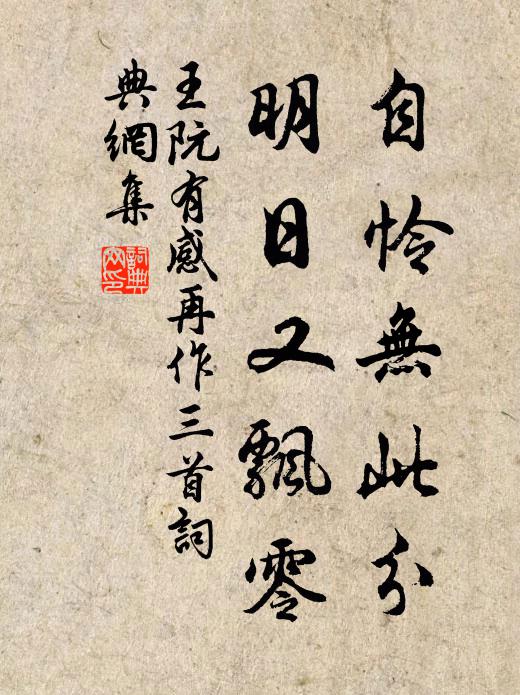 自怜無此分
明日又飄零
王阮有感再作三首詞
典網集
詞典
网印